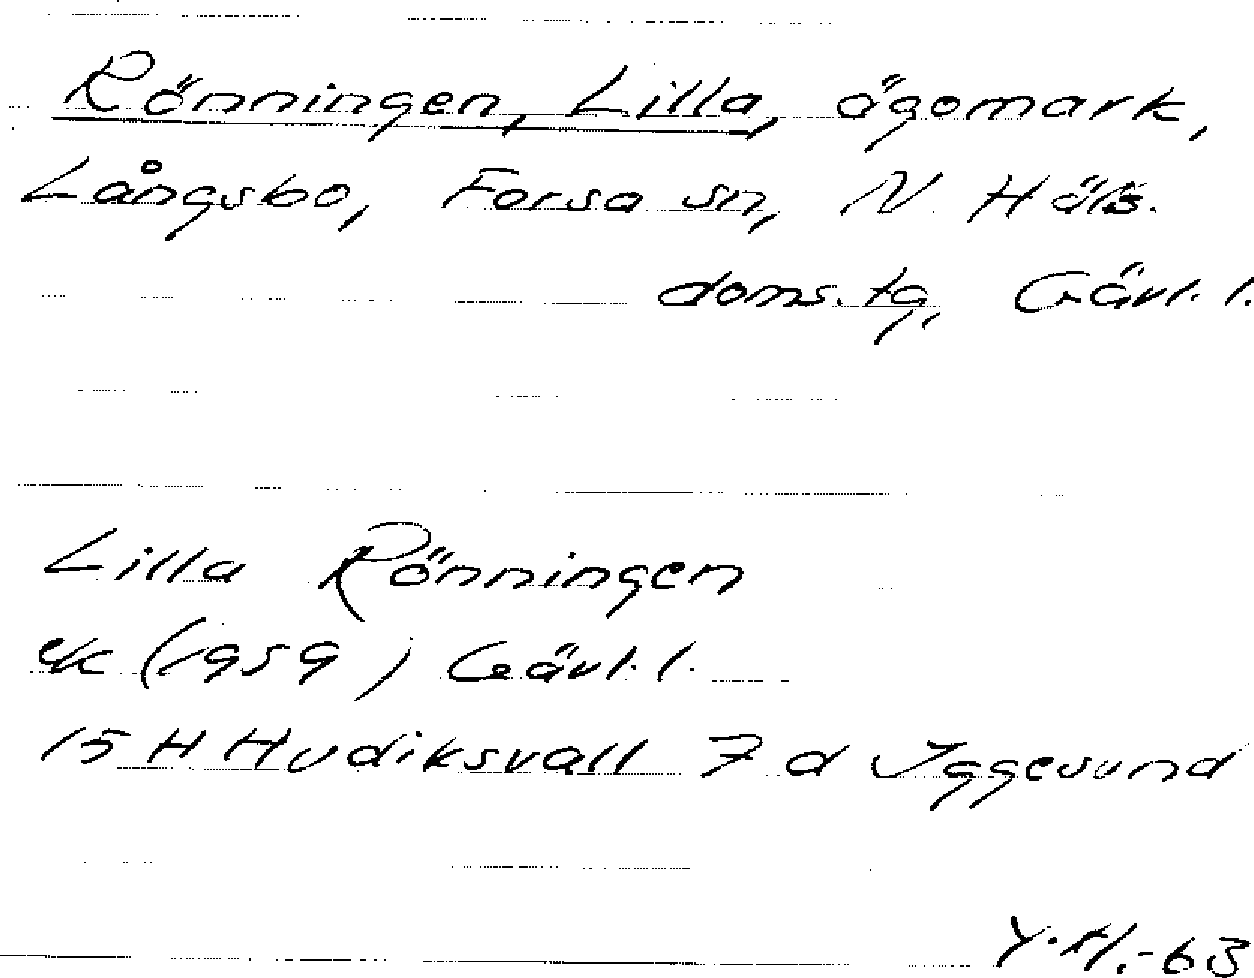 Rönningen, Lilla, ägomark,
Långsbo, Forsa sn, N. Häls.
doms.tg, Gävl. l.
Lilla Rönningen
ek (1959) Gävl. l.
15 H Hudiksvall 7 d Iggesund
Y.H.-63